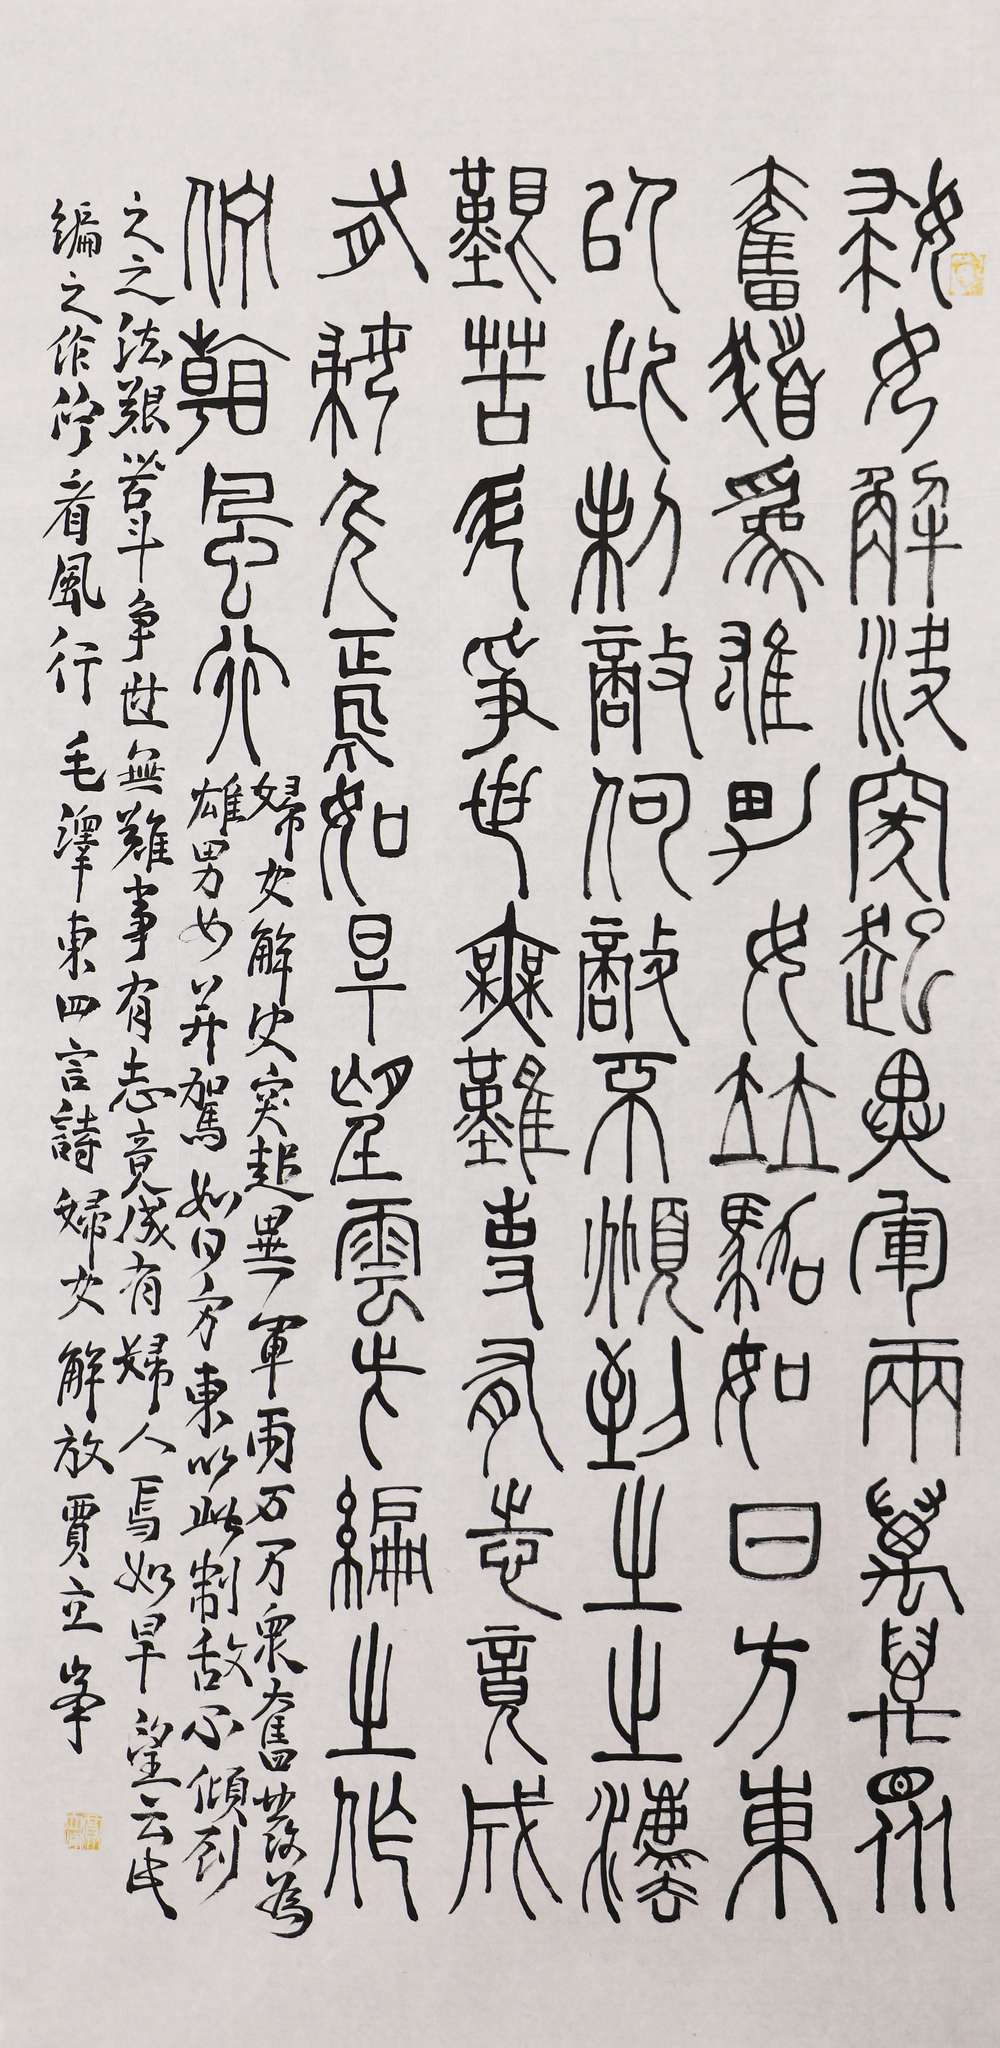 婦女解決突起異軍兩萬萬眾
奮發為雄男女竝駕如日方東
以此制敵何敵不傾到之之灋
艱苦鬥爭世無難事有志竟成
有婦人焉如旱望雲此編之作
佇看風行
婦女解決突起異軍兩万万眾奮發為
雄男女并駕如日方東以此制敌不傾到
之之法艱苦斗争世無難事有志竟成有婦人焉如旱望云此
編之作佇看風行 毛澤東四言詩婦女解放 賈立